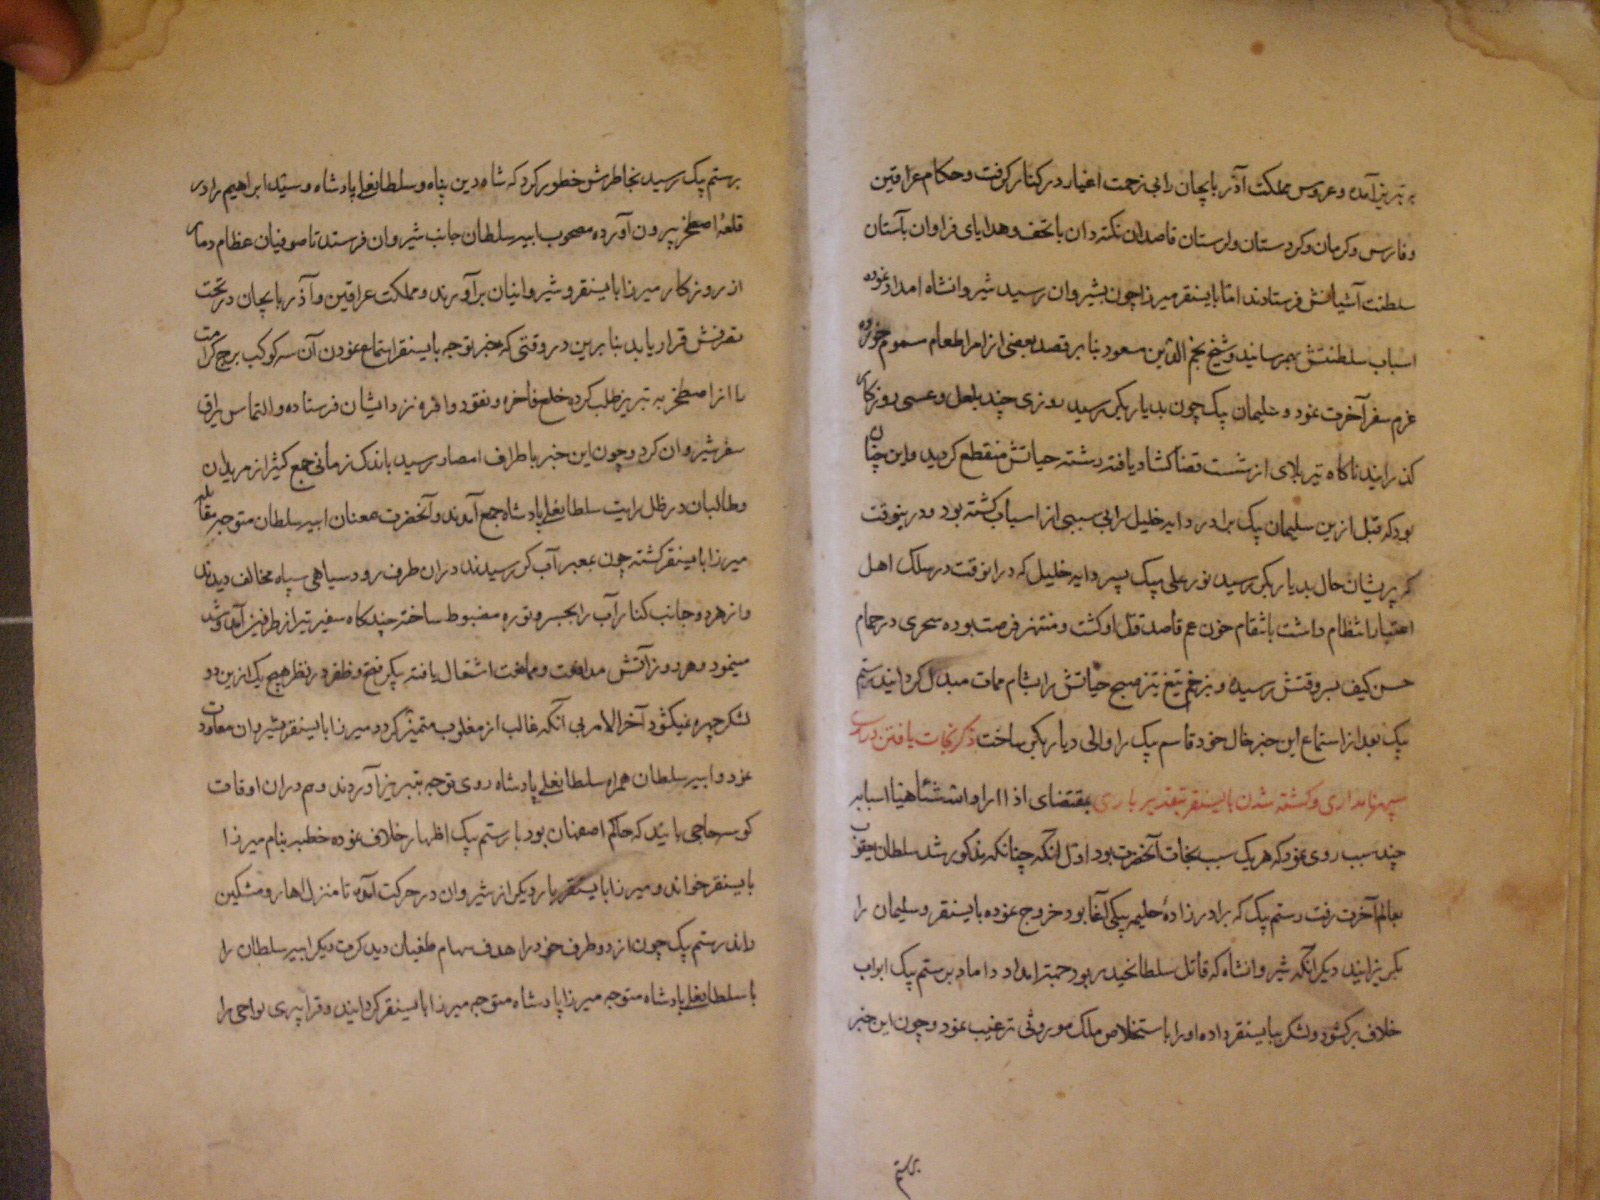 به تبریز آمده و عروس مملکت آذربایجان را بی زحمت اغیار در کنار گرفت و حکام عراقین
و فارس و کرمان و کردستان و لرستان قاصدان نکته دان با تحف و هدایای فراوان بآستان
سلطنت آشیانش فرستادند اما باینقر میرزا چون بشیروان رسید شیروانشاه امداد نموده
اسباب سلطنتش بهم رسانید و شیخ نجم الدین مسعود بنا بر قصد بعضی از امرا طعام مسموم خورده
عزم سفر آخرت نمود و سلیمان بیک چون بدیار بکر رسید روزی چند بلعل و عسی روزکار
کذرانید ناکاه تیر بلای از شست قضا کشاد یافته رشته حیاتش منقطع کردید و این چنان
بود که قبل ازین سلیمان بیک برادر دایه خلیل را بی سببی از اسباب کشته بود و درینوقت
که پریشان حال بدیار بکر رسید نور علی بیک پسر دایه خلیل که در انوقت در سلک اهل
اعتبار انتظام داشت بانتقام خون عم قاصد قتل او کشت و منتهز فرصت بوده سحری در حمام
حسن کیف بسر وقتش رسیده و بزخم تیغ تیز صبح حیاتش را بشام ممات مبدل کردانید رستم
بیک بعد از استماع این خبر خال خود قاسم بیک را والی دیار بکر ساخت ذکر نجات یافتن
سپهر نامداری و کشته شدن باینقر بتقدیر باری بمقتضای اذا اراد الله شئا هیا اسبابه
چند سبب روی نمود که هر یک سبب نجات آنحضرت بود اول آنکه چنانکه مذکور شد سلطان یعقوب
بعالم آخرت رفت رستم بیک که برادر زادهٔ حلیمه بیکی آغا بود خروج نموده باینقر و سلیمان را
بکریزانید دیکر آنکه شیروانشاه که قاتل سلطانحیدر بود جهة امداد داماد بر رستم بیک ابواب
خلاف برکشود و لشکر بباینقر داده او را باستخلاص ملک موروثی ترغیب نمود و چون این خبر
برستم
برستم بیک رسید بخاطرش خطور کرد که شاه دین پناه و سلطانعلی پادشاه و سید ابراهیم را از
قلعهٔ اصطخر بیرون آورده مصحوب ابیه سلطان جانب شیروان فرستد تا صوفیان عظام دمار
از روزکار میرزا باینقر و شیروانیان برآورند و مملکت عراقین و آذربایجان در تحت
تصرفش قرار یابد بنا برین در وقتی که خبر توجه باینقر استماع نمودن آن سه کوکب برج کرامت
را از اصطخر به تبریز طلب کرده خلع فاخره و نقود وافره نزد ایشان فرستاده و التماس یراق
سفر شیروان کرد و چون این خبر باطراف امصار رسید باندک زمانی جمع کثیر از مریدان
و طالبان در ظل رایت سلطانعلی پادشاه جمع آمدند و آنحضرت همعنان ابیه سلطان متوجه مقابله
میرزا باینقر کشته چون بمعبر آب کر رسیدند در ان طرف رود سیاهی سپاه مخالف دیدند
و از هر دو جانب کنار آب را بجسر و توره مضبوط ساخته چند کاه سفیر تیر از طرفین آمد و شد
مینمود و هر روز آتش مدافعت و ممانعت اشتعال یافته پیکر فتح و ظفر در نظر هیچ یک ازین دو
لشکر چهره نمیکشود آخر الامر بی آنکه غالب از مغلوب متمیز کردد میرزا باینقر بشیروان معاودت
نمود و ابیه سلطان همراه سلطانعلی پادشاه روی توجه بتبریز آوردند و هم در ان اوقات
کوسه حاجی بایند که حاکم اصفهان بود با رستم بیک اظهار خلاف نموده خطبه بنام میرزا
باینقر خواند و میرزا باینقر بار دیکر از شیروان در حرکت آمده تا منزل اهار و مشکین
راند رستم بیک چون از دو طرف خود را هدف سهام طغیان دید کرت دیکر ابیه سلطان را
با سلطانعلی پادشاه متوجه میرزا پادشاه متوجه میرزا باینقر کردانید و قرا پیری تواجی را